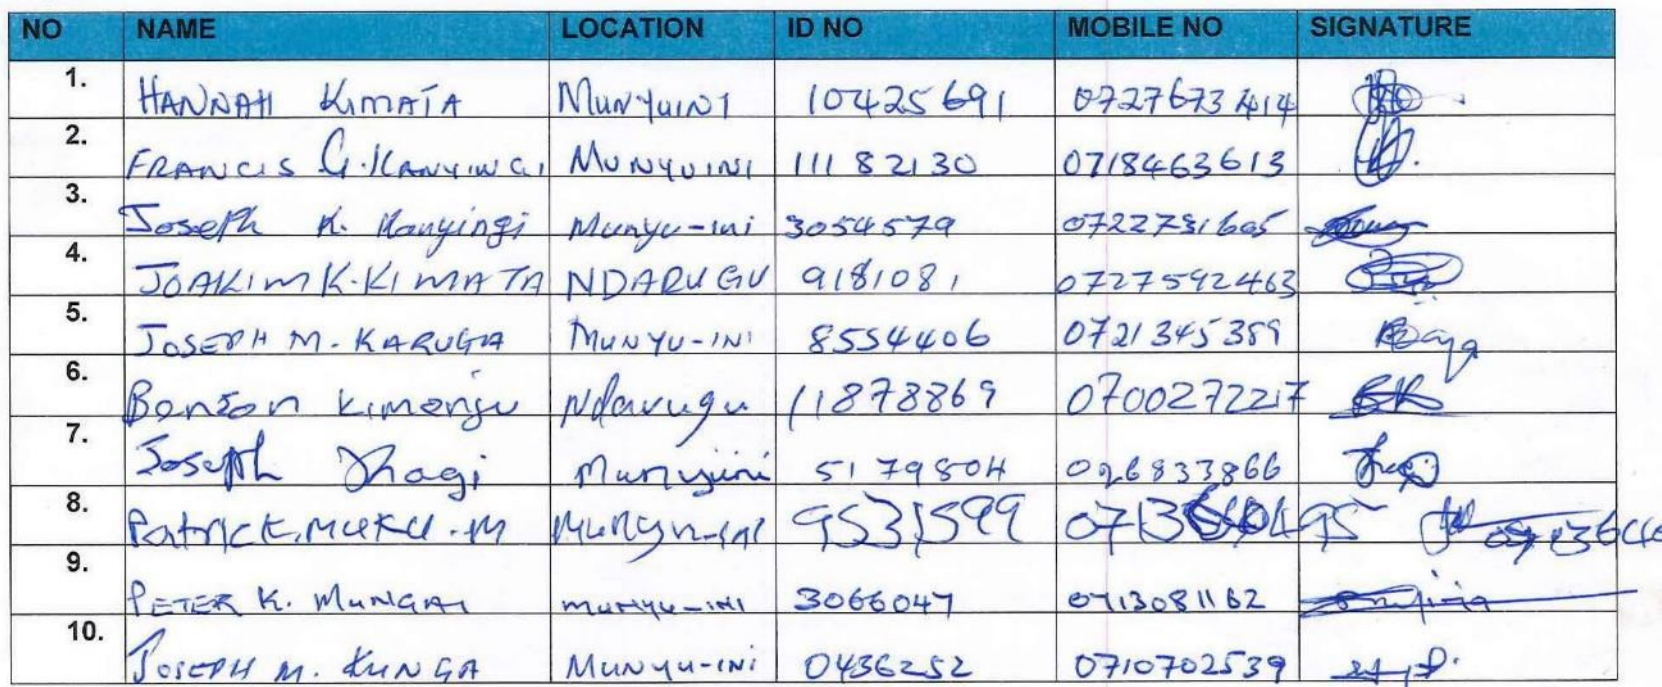 NO NAME LOCATION ID NO MOBILE NO SIGNATURE
1. HANNAH KIMATA MUNYUINI 10425691 0727673414
2. FRANCIS G. KANYINGI MUNYUINI 11182130 0718463613
3. Joseph K. Kanyingi Munyu-ini 3054579 0722731605
4. JOAKIM K. KIMATA NDARUGU 9181081 0727592463
5. JOSEPH M. KARUGA MUNYU-INI 8554406 0721345389
6. Benson Kimengu Ndarugu 11878869 0700272217
7. Joseph Thagi Munyuini 5179804 0726833866
8. Patrick. MUKU . M Munyu-ini 9531599
9. PETER K. MUNGAI munyu-ini 3066047 0713081162
10. JOSEPH M. KUNGA MUNYU-INI 0436252 0710702539